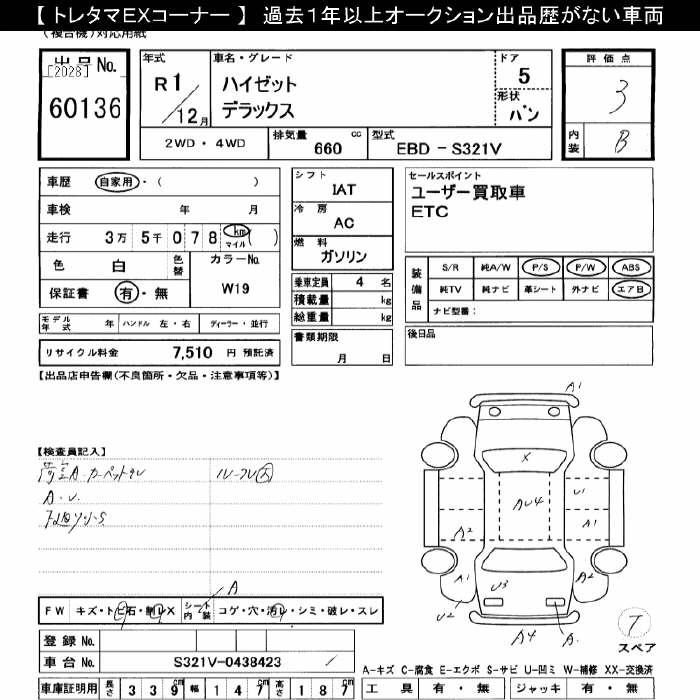 【 トレタマEXコーナー 】 過去1年以上オークション出品歴がない車両
(複合機)対応用紙
出品No. [2028]
60136
年式 R1/12月
車名・グレード
ハイゼット
デラックス
ドア 5
形状 バン
評価点 3
内装 B
2WD・4WD
排気量 660 cc
型式 EBD-S321V
車歴 自家用・( )
車検 年 月
走行 3万 5千 0 7 8 km マイル ( )
色 白 色替 カラーNo. W19
保証書 有・無
シフト IAT
冷房 AC
燃料 ガソリン
乗車定員 4 名
積載量 kg
総重量 kg
書類期限 月 日
セールスポイント
ユーザー買取車
ETC
装備品
S/R 純A/W P/S P/W ABS
純TV 純ナビ 革シート 外ナビ エアB
ナビ型番:
後日品
モデル年式 年 ハンドル 左・右 ディーラー・並行
リサイクル料金 7,510 円 預託済
【出品店申告欄(不良箇所・欠品・注意事項等)】
【検査員記入】
A・U
A1
X
AU4
U1
A1
A2
A1
A2
U2
U3
A4
A
A
FW キズ・トビ石・割レX シート内装 コゲ・穴・汚レ・シミ・破レ・スレ
T
スペア
登録No.
車台No. S321V-0438423
A-キズ C-腐食 E-エクボ S-サビ U-凹ミ W-補修 XX-交換済
車庫証明用 長さ 3 3 9 cm 幅 1 4 7 cm 高さ 1 8 7 cm
工具 有・無 ジャッキ 有・無